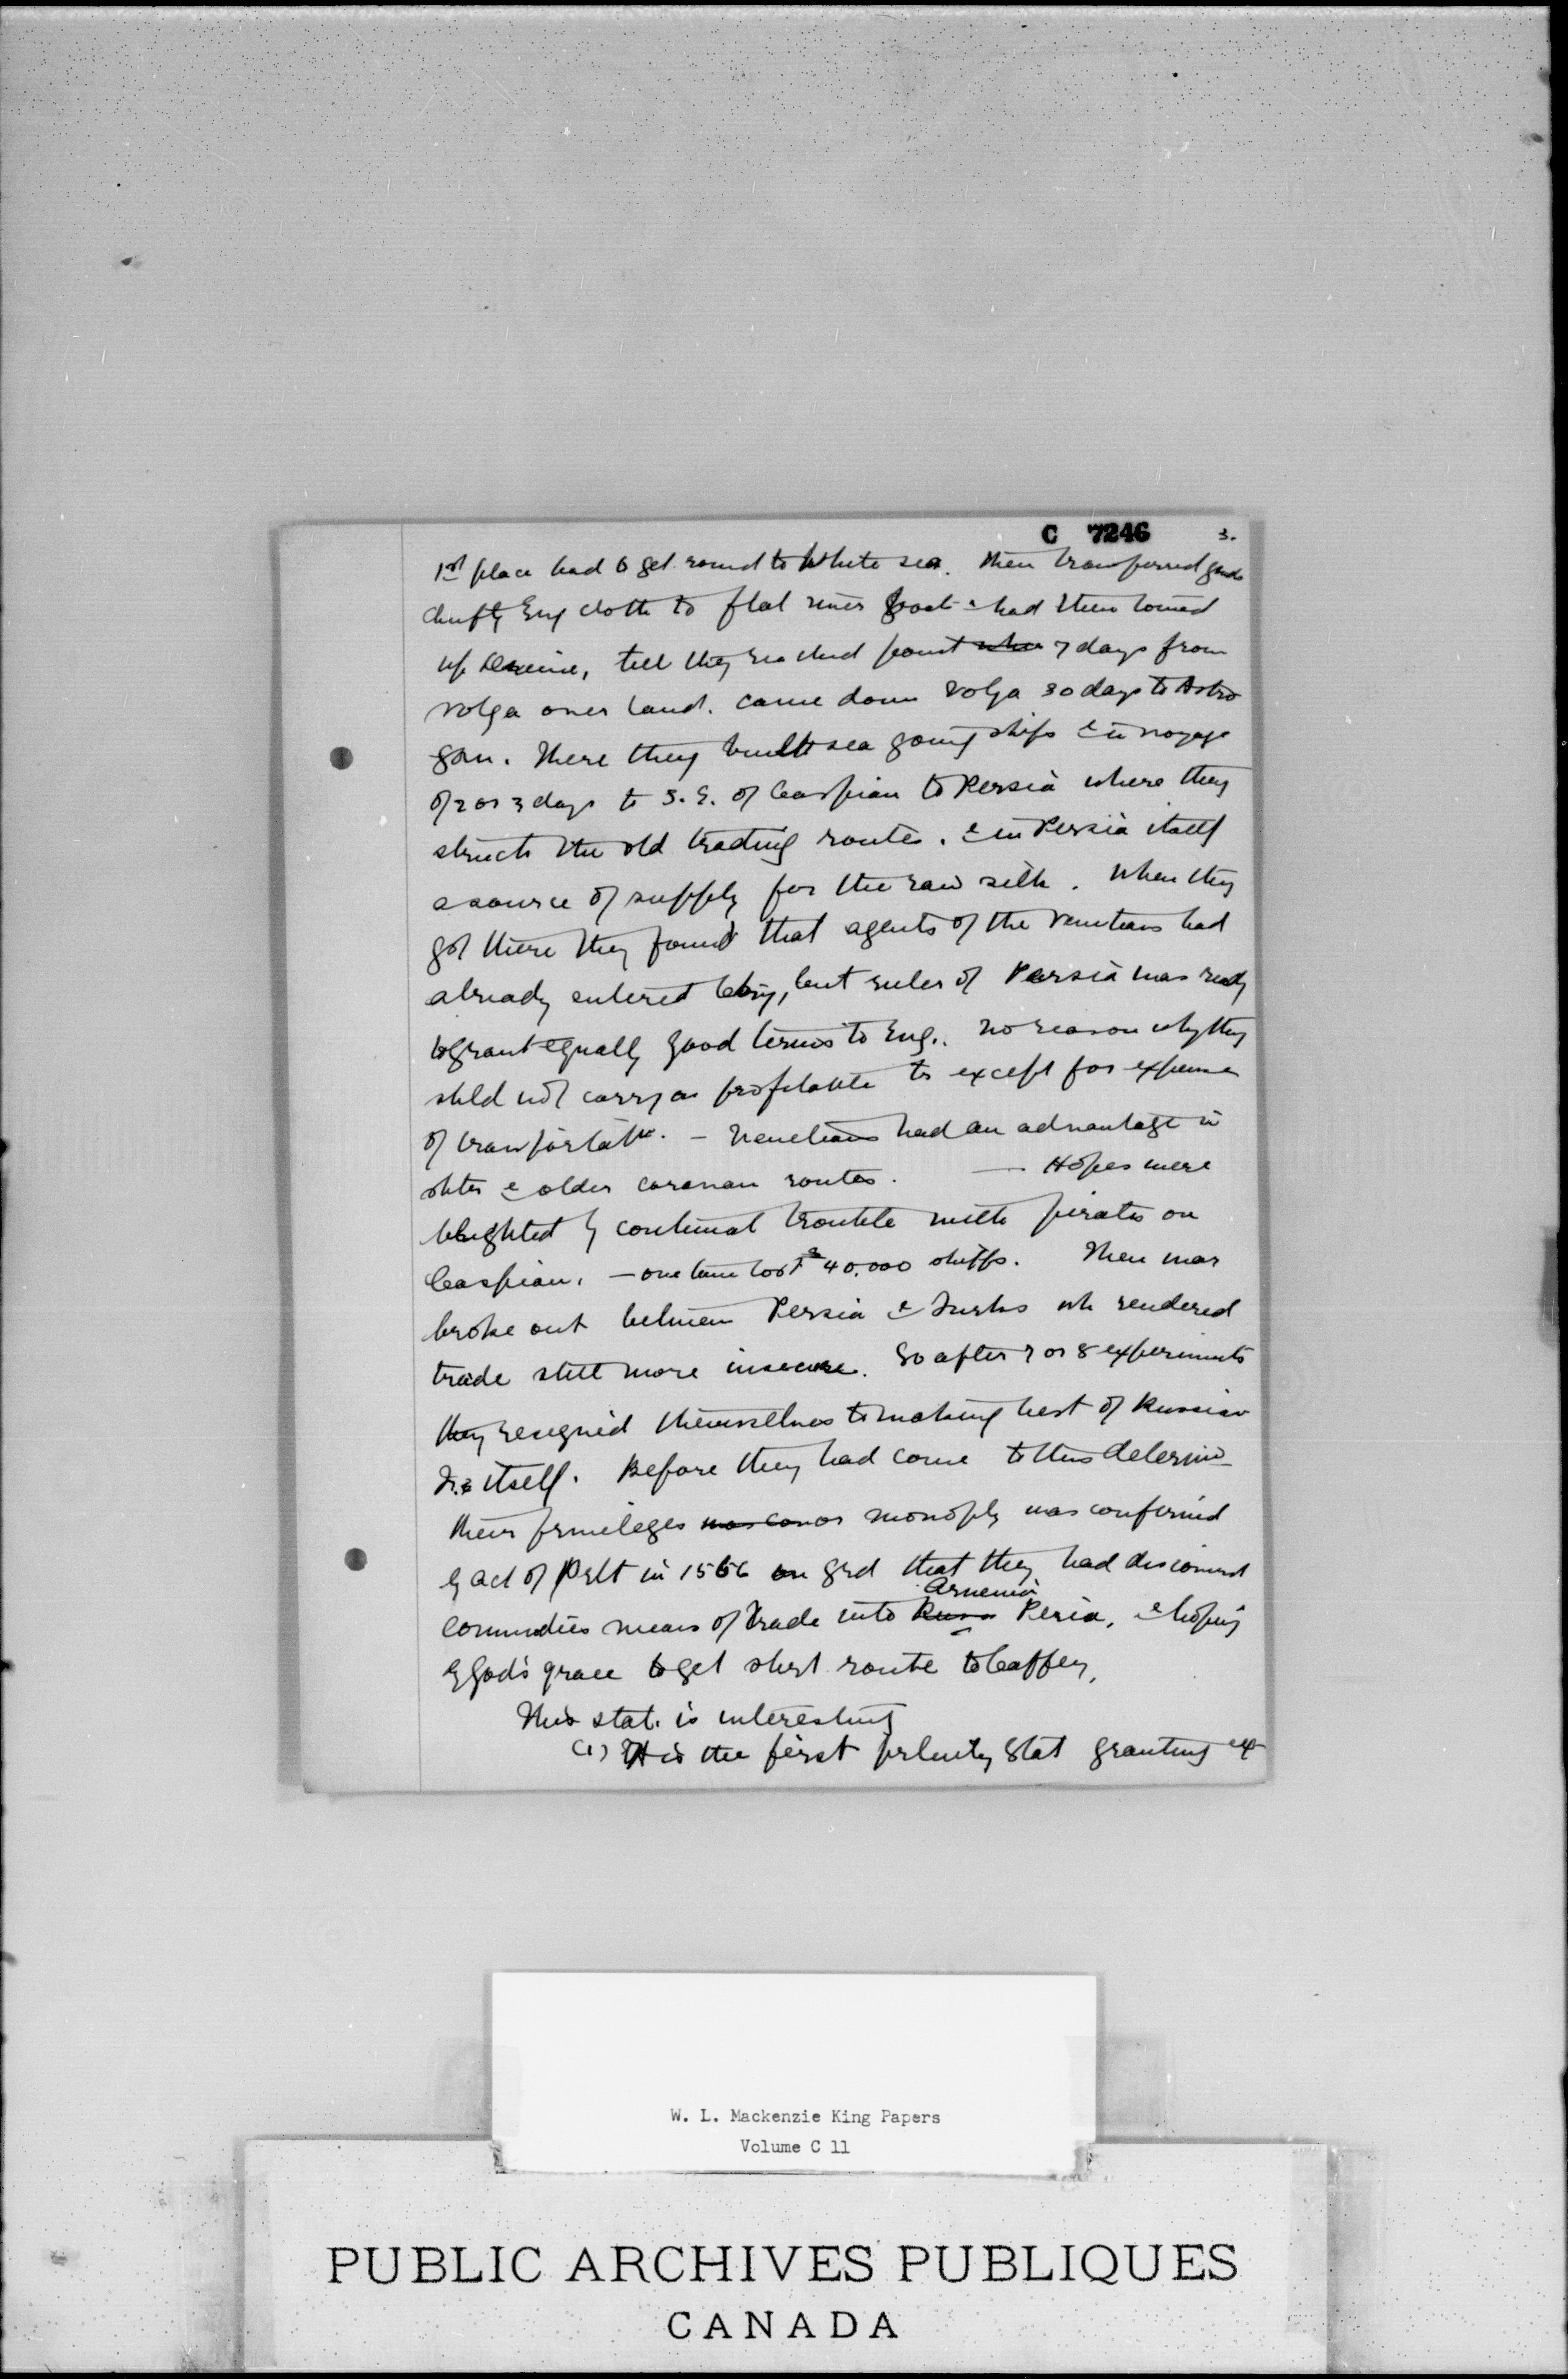 C 7246 3.
1st place had to get round to White sea. Then transferred goods
chiefly Eng cloth to flat river boats & had them towed
up Dwina, till they reached point when 7 days from
Volga over land. Came down Volga 30 days to Astro
gan. There they built sea going ships & in voyage
of 2 or 3 days to S.E. of Caspian to Persia where they
struck the old trading routes. & in Persia itself
a source of supply for the raw silk. When they
got there they found that agents of the Venetians had
already entered, but ruler of Persia was ready
to grant equally good terms to Eng.. No reason why they
shld not carry on profitable tr except for expense
of transportatn. - Venetians had an advantage in
shter & older caravan routes. — Hopes were
blighted by continual trouble with pirates on
Caspian. - one time lost 40.000 Then war
broke out between Persia & Turks wh rendered
trade still more insecure. So after 7 or 8 experiments
they resigned themselves to making best of Russian
Tr. itself. Before they had come to this determin
their privileges was con or monoply was confirmed
by act of Prlt in 1566 on grd that they had discovered
Armenia
commodies means of trade into Russ Persia, & hoping
by God's grace to get short route to Caffey,
This stat. is interesting
(1) It is the first prlmty Stat granting ex
W. L. Mackenzie King Papers
Volume C 11
PUBLIC ARCHIVES PUBLIQUES
CANADA